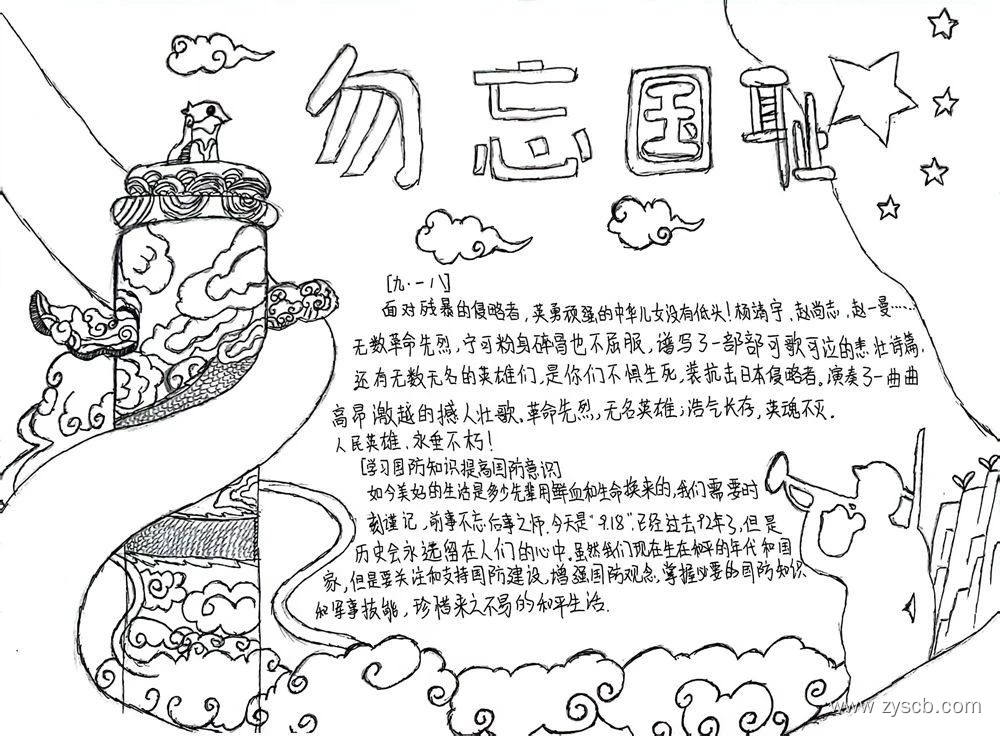 勿忘国耻
[九·一八]
面对残暴的侵略者，英勇顽强的中华儿女没有低头！杨靖宇、赵尚志，赵一曼……
无数革命先烈，宁可粉身碎骨也不屈服，谱写了一部部可歌可泣的悲壮诗篇.
还有无数无名的英雄们，是你们不惧生死，装抗击日本侵略者。演奏了一曲曲
高昂激越的撼人壮歌。革命先烈，无名英雄；浩气长存，英魂不灭.
人民英雄、永垂不朽！
[学习国防知识提高国防意识]
如今美好的生活是多少先辈用鲜血和生命换来的，我们需要时
刻谨记，前事不忘后事之师.今天是“9.18”，已经过去92年了，但是
历史会永远留在人们的心中。虽然我们现在生在和平的年代和国
家，但是要关注和支持国防建设，增强国防观念，掌握必要的国防知识
和军事技能，珍惜来之不易的和平生活.
www.zyscb.com